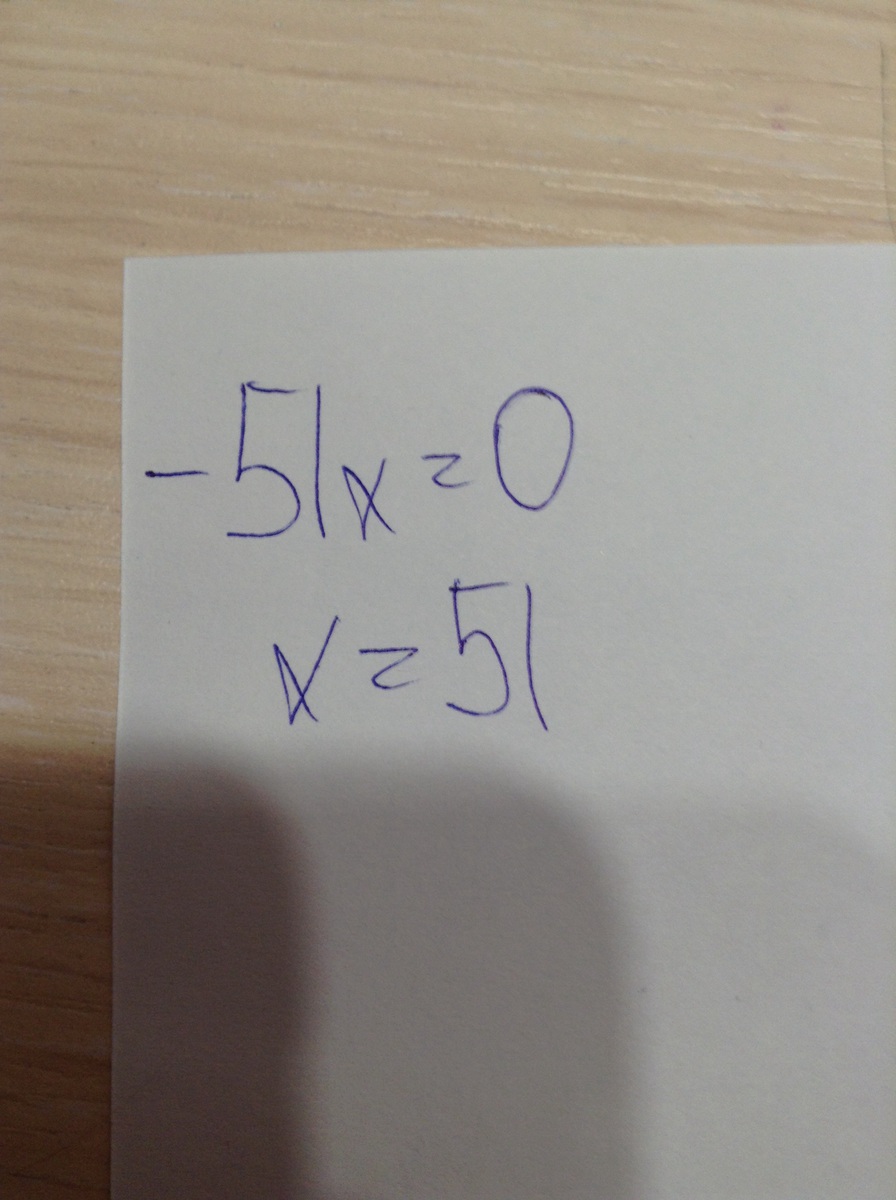 -51x=0
x=51